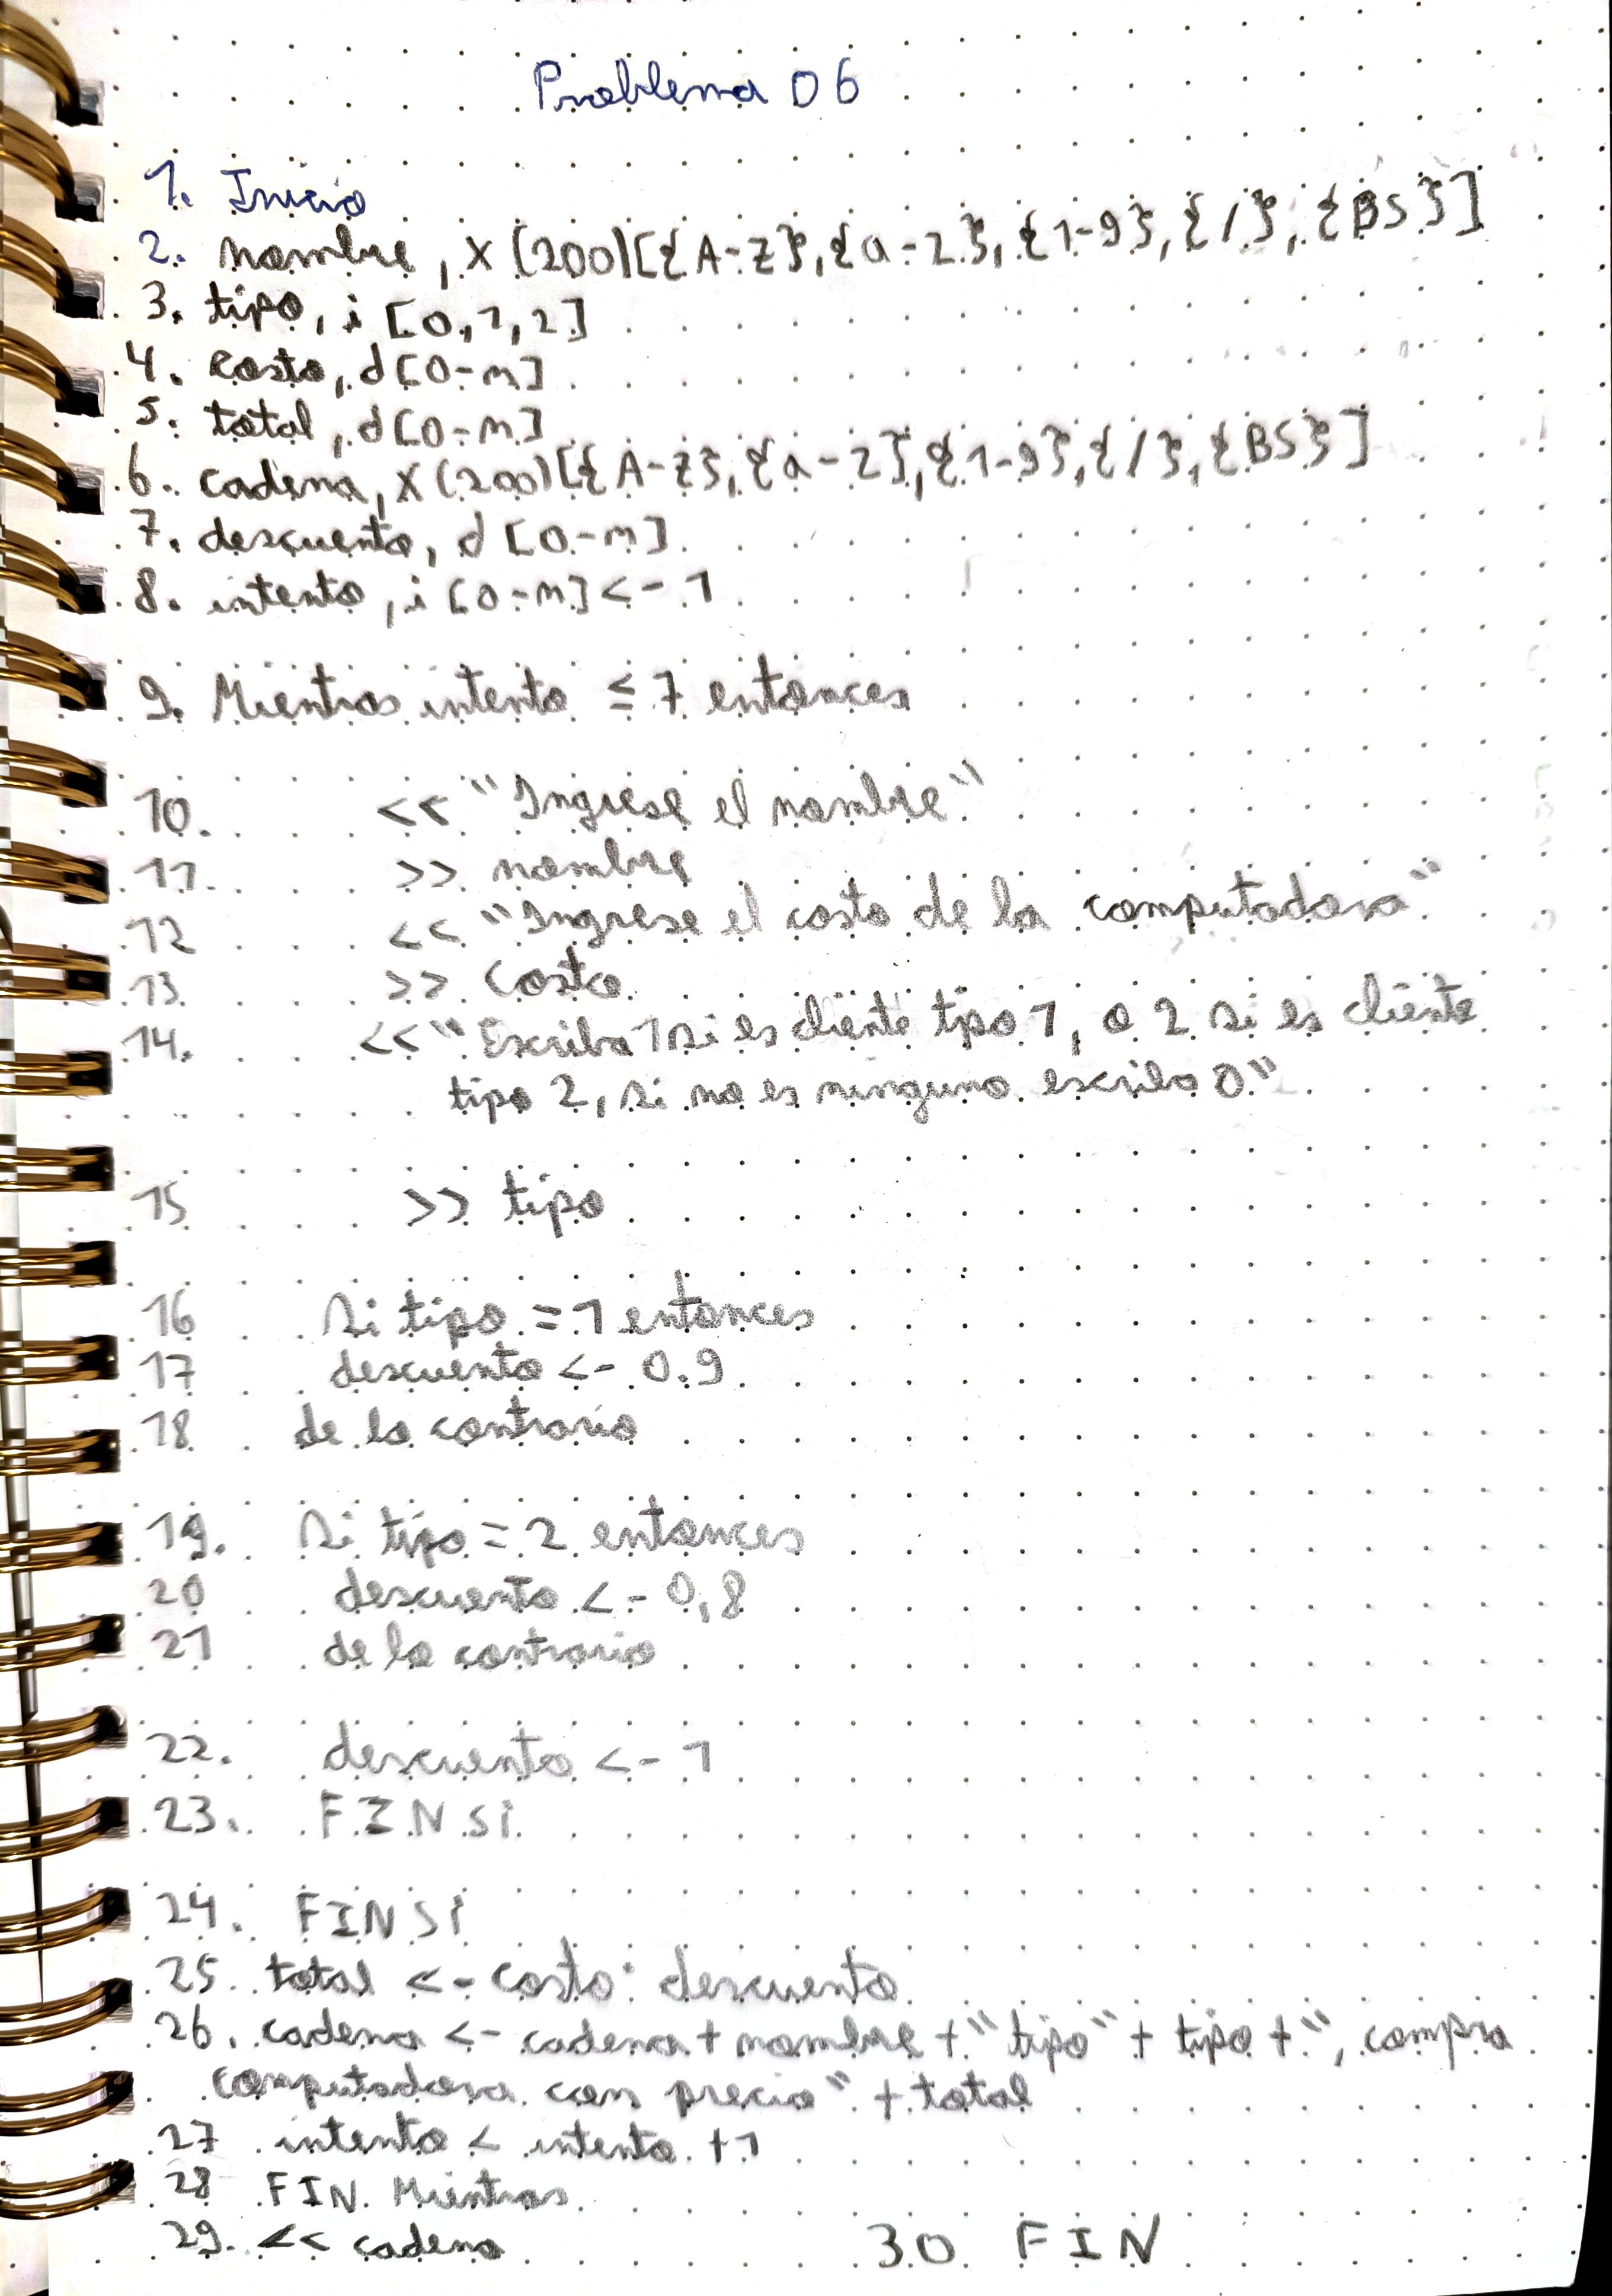 Problema 06
1. Inicio
2. nombre, X (200)[{A-Z},{a-z},{1-9},{/},{BS}]
3. tipo, i [0,1,2]
4. costo, d[0-n]
5. total, d[0-n]
6. cadena, X(200)[{A-Z},{a-z},{1-9},{/},{BS}]
7. descuento, d [0-n]
8. intento, i [0-n] <- 1
9. Mientras intento ≤ 7 entonces
10. << "Ingrese el nombre"
11. >> nombre
12 << "Ingrese el costo de la computadora"
13 >> costo
14. << "Escriba 1 si es cliente tipo 1, o 2 si es cliente
tipo 2, si no es ninguno escriba 0"
15 >> tipo
16 Si tipo = 1 entonces
17 descuento <- 0.9
18 de lo contrario
19. Si tipo = 2 entonces
20 descuento <- 0,8
21 de lo contrario
22. descuento <- 1
23. FINSi
24. FINSi
25 total <- costo · descuento
26. cadena <- cadena + nombre + "tipo" + tipo + ", compra
computadora con precio" + total
27 intento < intento +1
28 FIN Mientras
29. << cadena
30 FIN